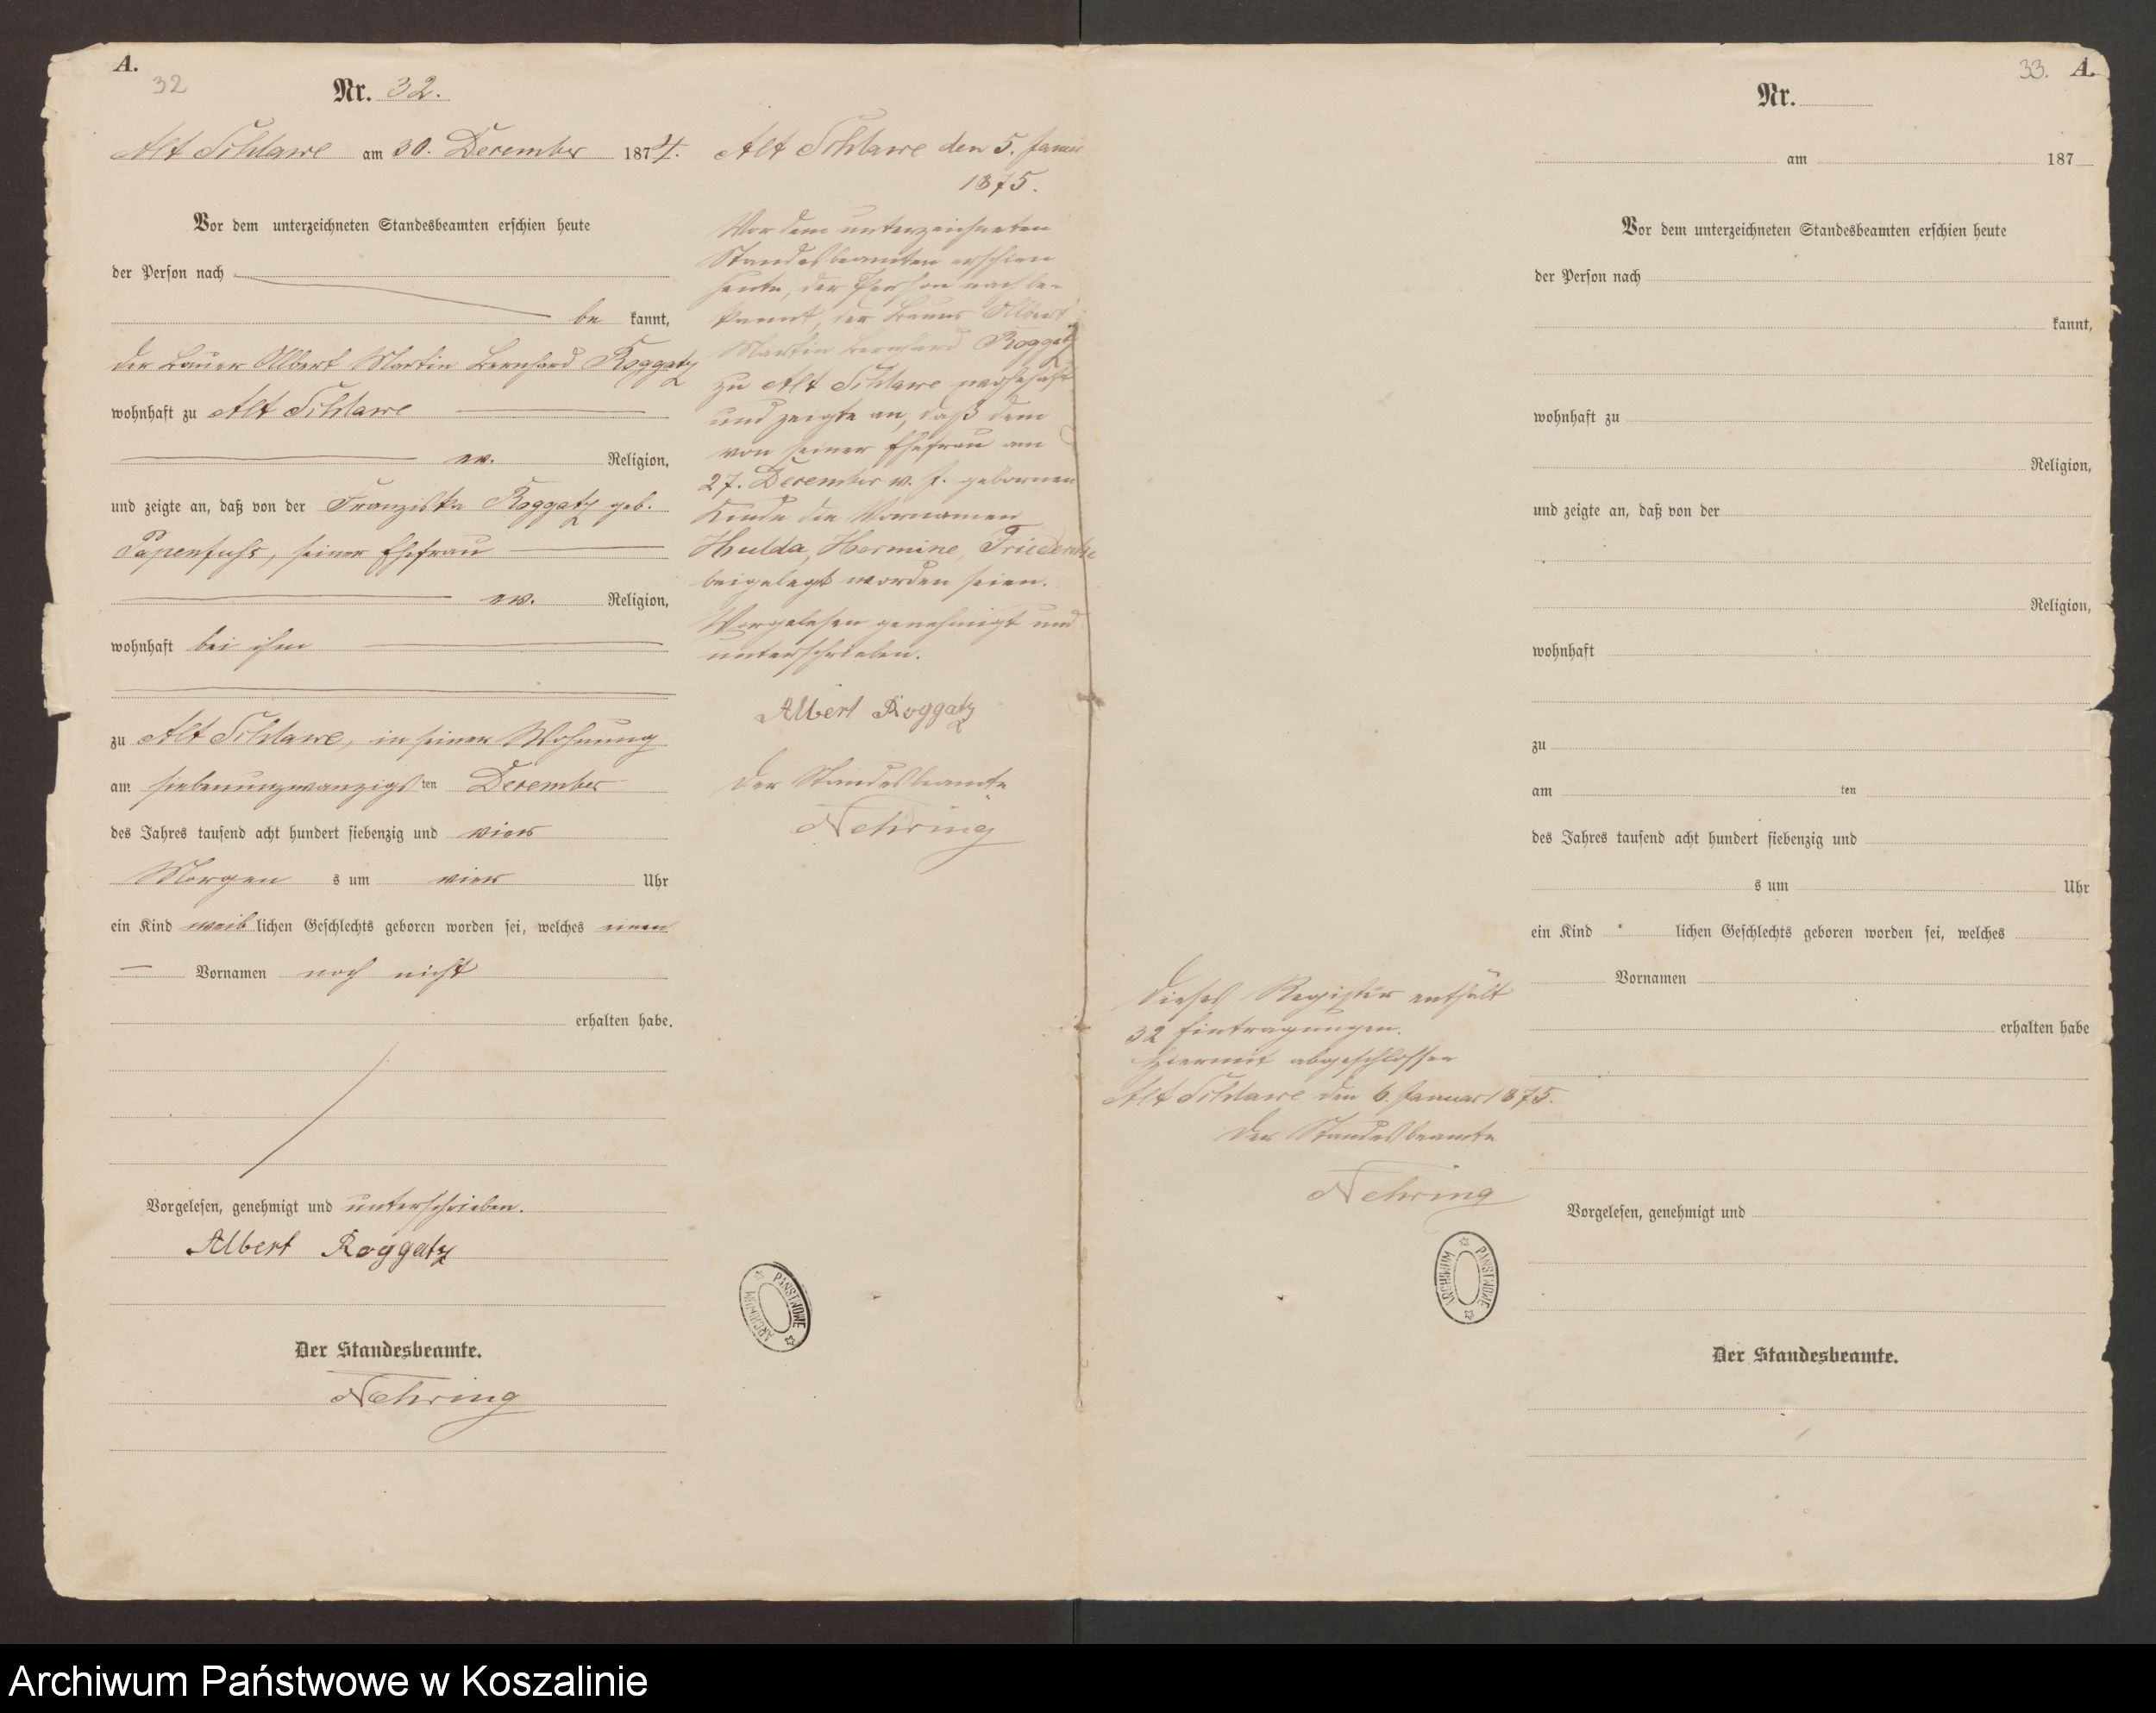 A.
32
Nr. 32.
Alt Schlawe am 30. December 1874.
Vor dem unterzeichneten Standesbeamten erschien heute
der Person nach
be kannt,
der Bauer Albert Martin Bernhard Roggatz
wohnhaft zu Alt Schlawe
ev. Religion,
und zeigte an, daß von der Franziska Roggatz geb.
Papenfuhs, seiner Ehefrau
ev. Religion,
wohnhaft bei ihm
zu Alt Schlawe, in seiner Wohnung
am siebenunzwanzigs ten December
des Jahres tausend acht hundert siebenzig und vier
Morgen s um vier Uhr
ein Kind weib lichen Geschlechts geboren worden sei, welches einen
Vornamen noch nicht
erhalten habe.
Vorgelesen, genehmigt und unterschrieben.
Albert Roggatz
Der Standesbeamte.
Nehring
Alt Schlawe den 5. Januar
1875.
Vor dem unterzeichneten
Standesbeamten erschien
heute, der Person nach be-
kannt, der Bauer Albert
Martin Bernhard Roggatz
zu Alt Schlawe wohnhaft
und zeigte an, daß dem
von seiner Ehefrau am
27. December v. J. gebornen
Kinde die Vornamen
Hulda, Hermine, Friederike
beigelegt worden seien.
Vorgelesen genehmigt und
unterschrieben.
Albert Roggatz
Der Standesbeamte
Nehring
ARCHIWUM PAŃSTWOWE
Dieses Register enthält
32 Eintragungen.
Hiermit abgeschlossen
Alt Schlawe den 6. Januar 1875.
Der Standesbeamte
Nehring
ARCHIWUM PAŃSTWOWE
33. A.
Nr.
am 187
Vor dem unterzeichneten Standesbeamten erschien heute
der Person nach
kannt,
wohnhaft zu
Religion,
und zeigte an, daß von der
Religion,
wohnhaft
zu
am ten
des Jahres tausend acht hundert siebenzig und
s um Uhr
ein Kind lichen Geschlechts geboren worden sei, welches
Vornamen
erhalten habe
Vorgelesen, genehmigt und
Der Standesbeamte.
Archiwum Państwowe w Koszalinie